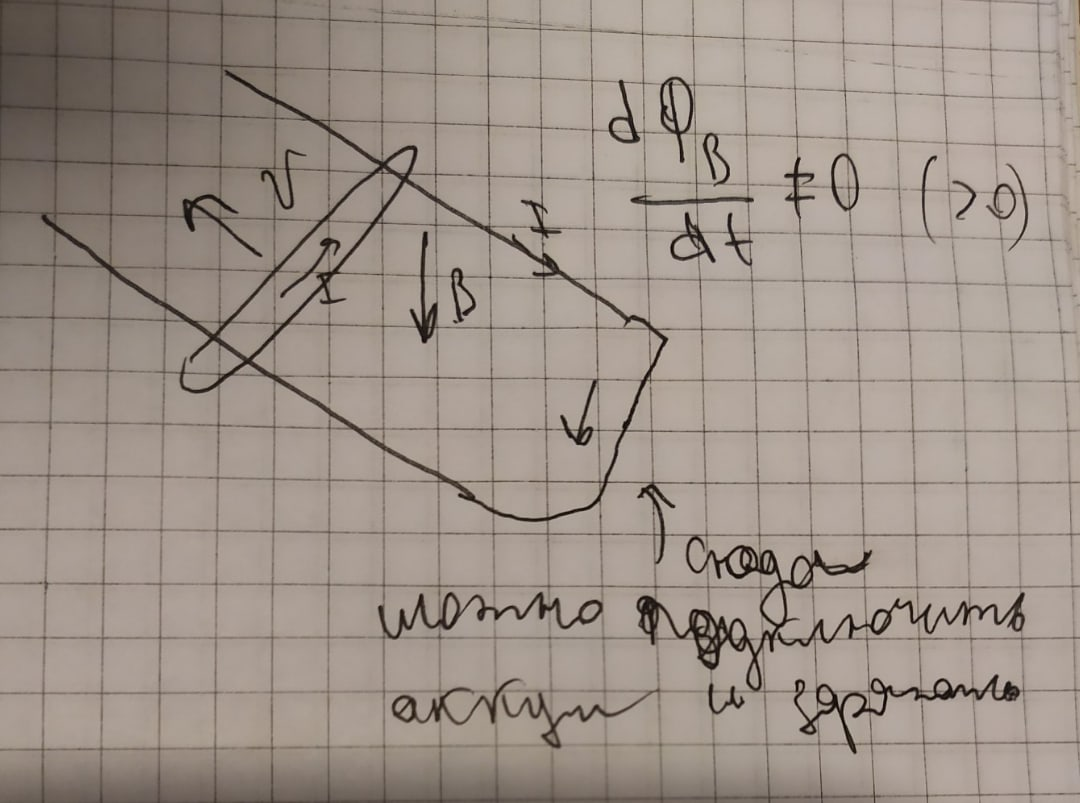 dΦ_B
dt
≠0 (>0)
v
I
I
B
сюда
можно подключить
аккум и заряжать